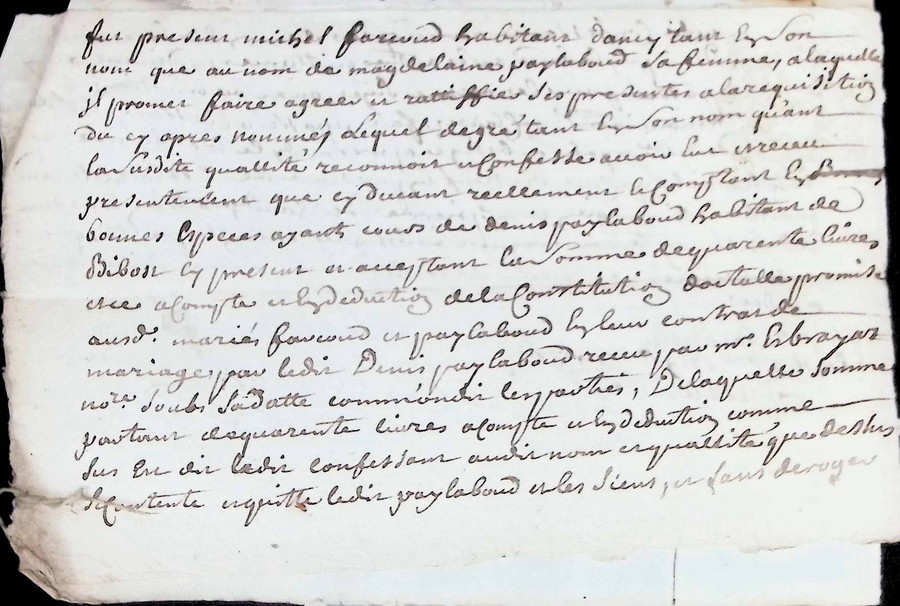 fut present michel farcoud habitant dancy tant En son
nom que au nom de magdelaine paylaboud sa femme, a laquelle
jl promet faire agreer et rattiffier ses presentes a la requisition
du cy apres nommés Lequel de gré tant En son nom qu'ant
la susdite quallité reconnoit et Confesse avoir Eu et receu
presentement que cy devant reellement et Comptant En
bonnes Especes ayant cours de denis paylaboud habitant de
Bibost Cy present et acceptant La somme de quarente livres
et ce acompte et En deduction de la Constitution dotalle promise
ausd. mariés farcoud et paylaboud En leur contrat de
mariage, par ledit Denis paylaboud receu par me. Esbrayat
nore. soubs sa datte comme ondit les parties, De laquelle somme
partant de quarente livres acompte et En deduction comme
sus Est dit ledit confessant audit nom et quallité que dessus
se Contente et quitte ledit paylaboud et les siens, et sans deroger